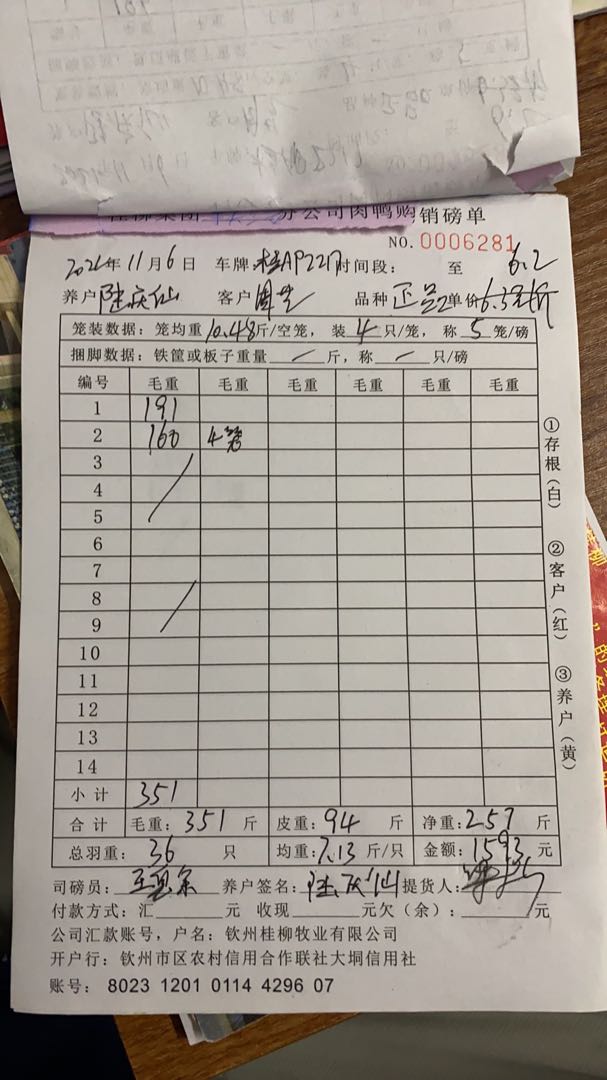 分公司肉鸭购销磅单
NO. 0006281
年 11 月 6 日 车牌: 时间段: 至 6.2
养户 陆庆仙 客户 品种 正 单价 6.
笼装数据: 笼均重 10.48 斤/空笼, 装 4 只/笼, 称 5 笼/磅
捆脚数据: 铁筐或板子重量 — 斤, 称 — 只/磅
编号 毛重 毛重 毛重 毛重 毛重 毛重
1 191
2 160 4笼
3
4
5
6
7
8
9
10
11
12
13
14
小计 351
合计 毛重: 351 斤 皮重: 94 斤 净重: 257 斤
总羽重: 36 只 均重: 7.13 斤/只 金额: 1593 元
司磅员: 养户签名: 陆庆仙 提货人:
付款方式: 汇 元 收现 元欠(余): 元
公司汇款账号, 户名: 钦州桂柳牧业有限公司
开户行: 钦州市区农村信用合作联社大垌信用社
账号: 8023 1201 0114 4296 07
①存根(白)
②客户(红)
③养户(黄)